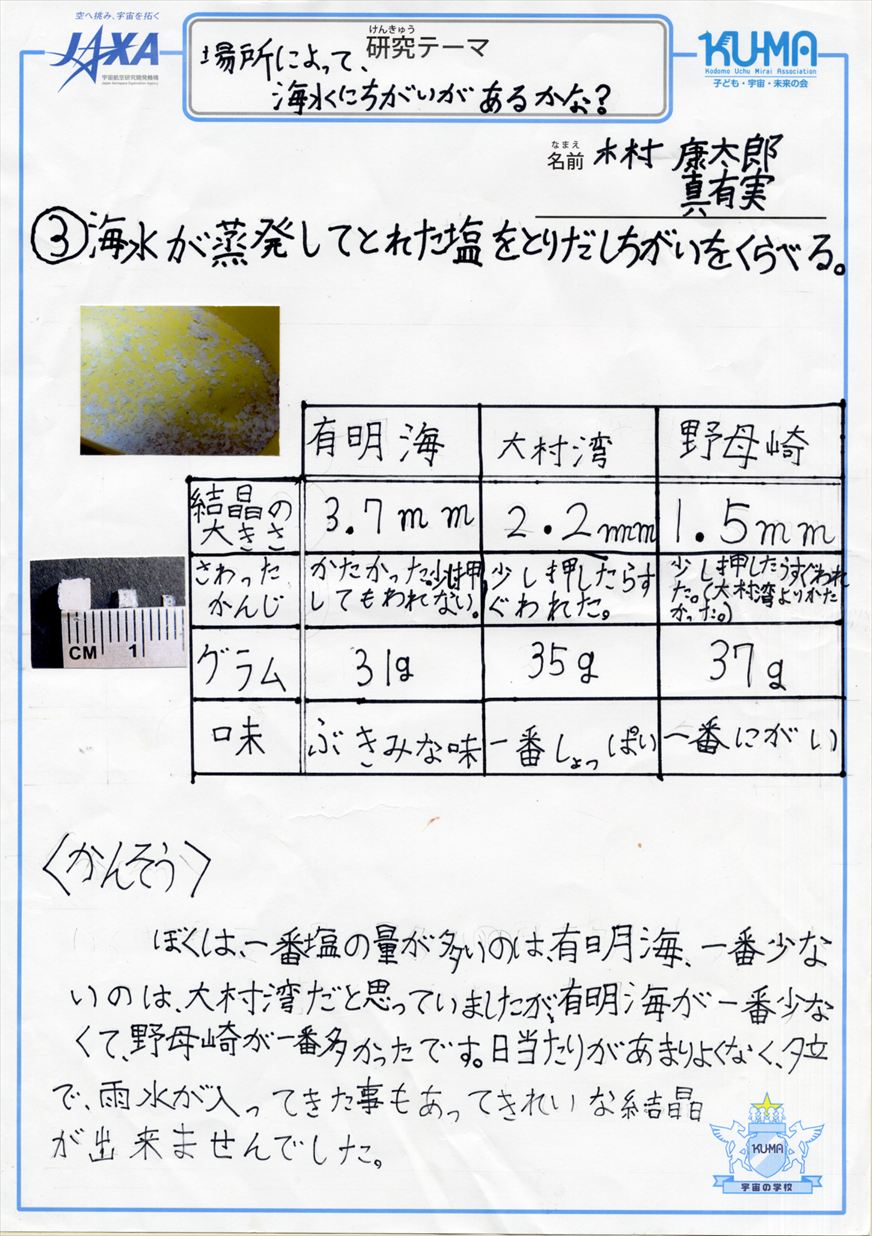 空へ挑み、宇宙を拓く
JAXA
宇宙航空研究開発機構
Japan Aerospace Exploration Agency
けんきゅう
研究テーマ
場所によって、
海水にちがいがあるかな?
KU-MA
Kodomo Uchu Mirai Association
子ども・宇宙・未来の会
なまえ
名前 木村 康太郎
真有実
③海水が蒸発してとれた塩をとりだしちがいをくらべる。
有明海 大村湾 野母崎
結晶の大きさ 3.7mm 2.2mm 1.5mm
さわったかんじ かたかった。少し押してもわれない。 少し押したらすぐわれた。 少し押したらすぐわれた。(大村湾よりかたかった。)
グラム 31g 35g 37g
味 ぶきみな味 一番しょっぱい 一番にがい
CM 1
〈かんそう〉
ぼくは、一番塩の量が多いのは、有明海、一番少な
いのは、大村湾だと思っていましたが、有明海が一番少な
くて、野母崎が一番多かったです。日当たりがあまりよくなく、夕立
で、雨水が入ってきた事もあってきれいな結晶
が出来ませんでした。
KU-MA
宇宙の学校